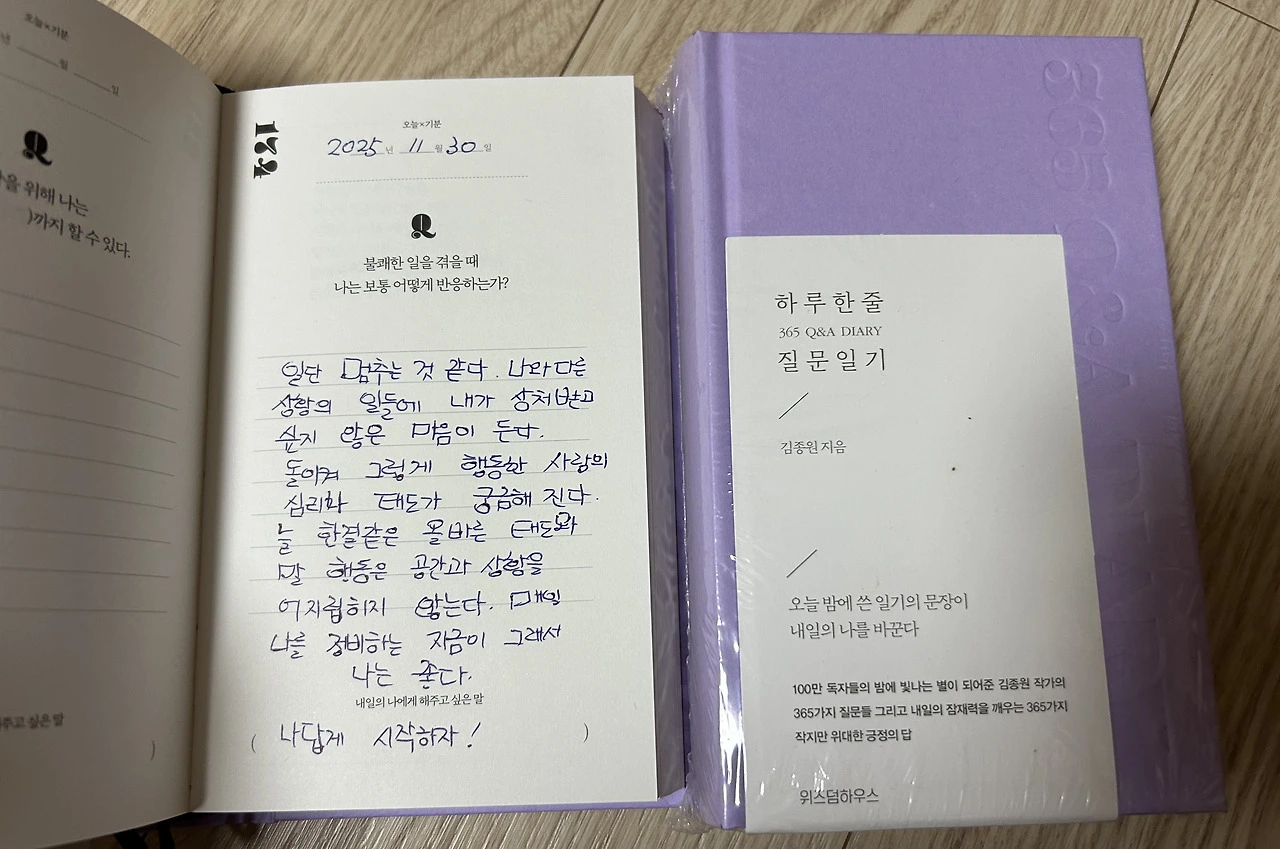 오늘×기분
년 월 일
Q
을 위해 나는
)까지 할 수 있다.
해주고 싶은 말
)
174
오늘×기분
2025년 11월 30일
Q
불쾌한 일을 겪을 때
나는 보통 어떻게 반응하는가?
일단 멈추는 것 같다. 나와 다른
상황의 일들에 내가 상처받고
싶지 않은 마음이 든다.
돌이켜 그렇게 행동한 사람의
심리와 태도가 궁금해 진다.
늘 한결같은 올바른 태도와
말 행동은 공간과 상황을
어지럽히지 않는다. 매일
나를 정비하는 지금이 그래서
나는 좋다.
내일의 나에게 해주고 싶은 말
( 나답게 시작하자! )
365 Q&A DIARY
하루 한 줄
365 Q&A DIARY
질문 일기
김종원 지음
오늘 밤에 쓴 일기의 문장이
내일의 나를 바꾼다
100만 독자들의 밤에 빛나는 별이 되어준 김종원 작가의
365가지 질문들 그리고 내일의 잠재력을 깨우는 365가지
작지만 위대한 긍정의 답
위즈덤하우스